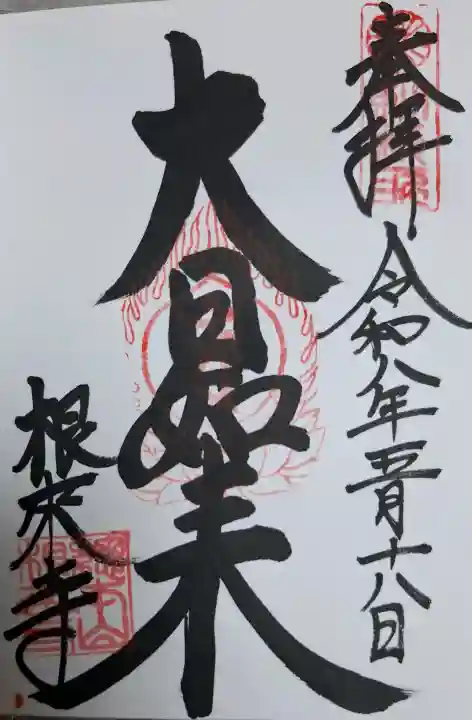 奉拝
令和八年五月十八日
大日如来
根来寺